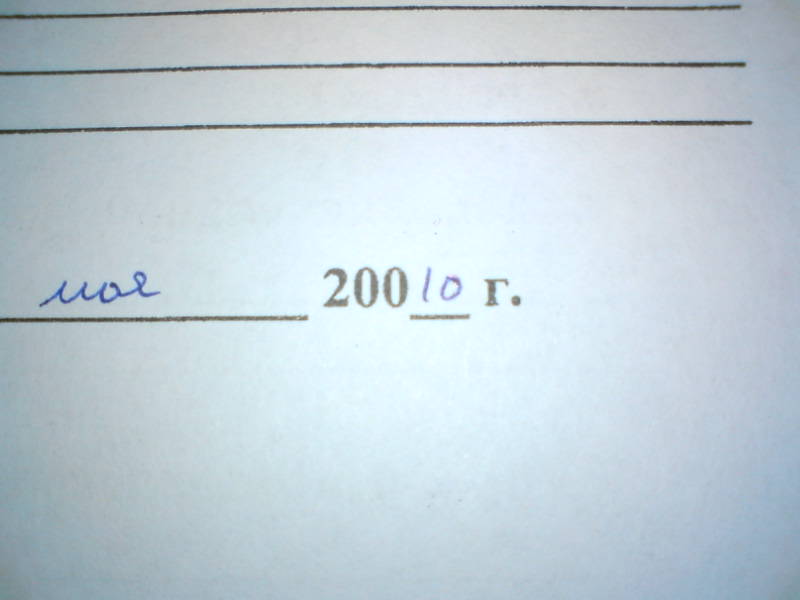 мая 20010 г.